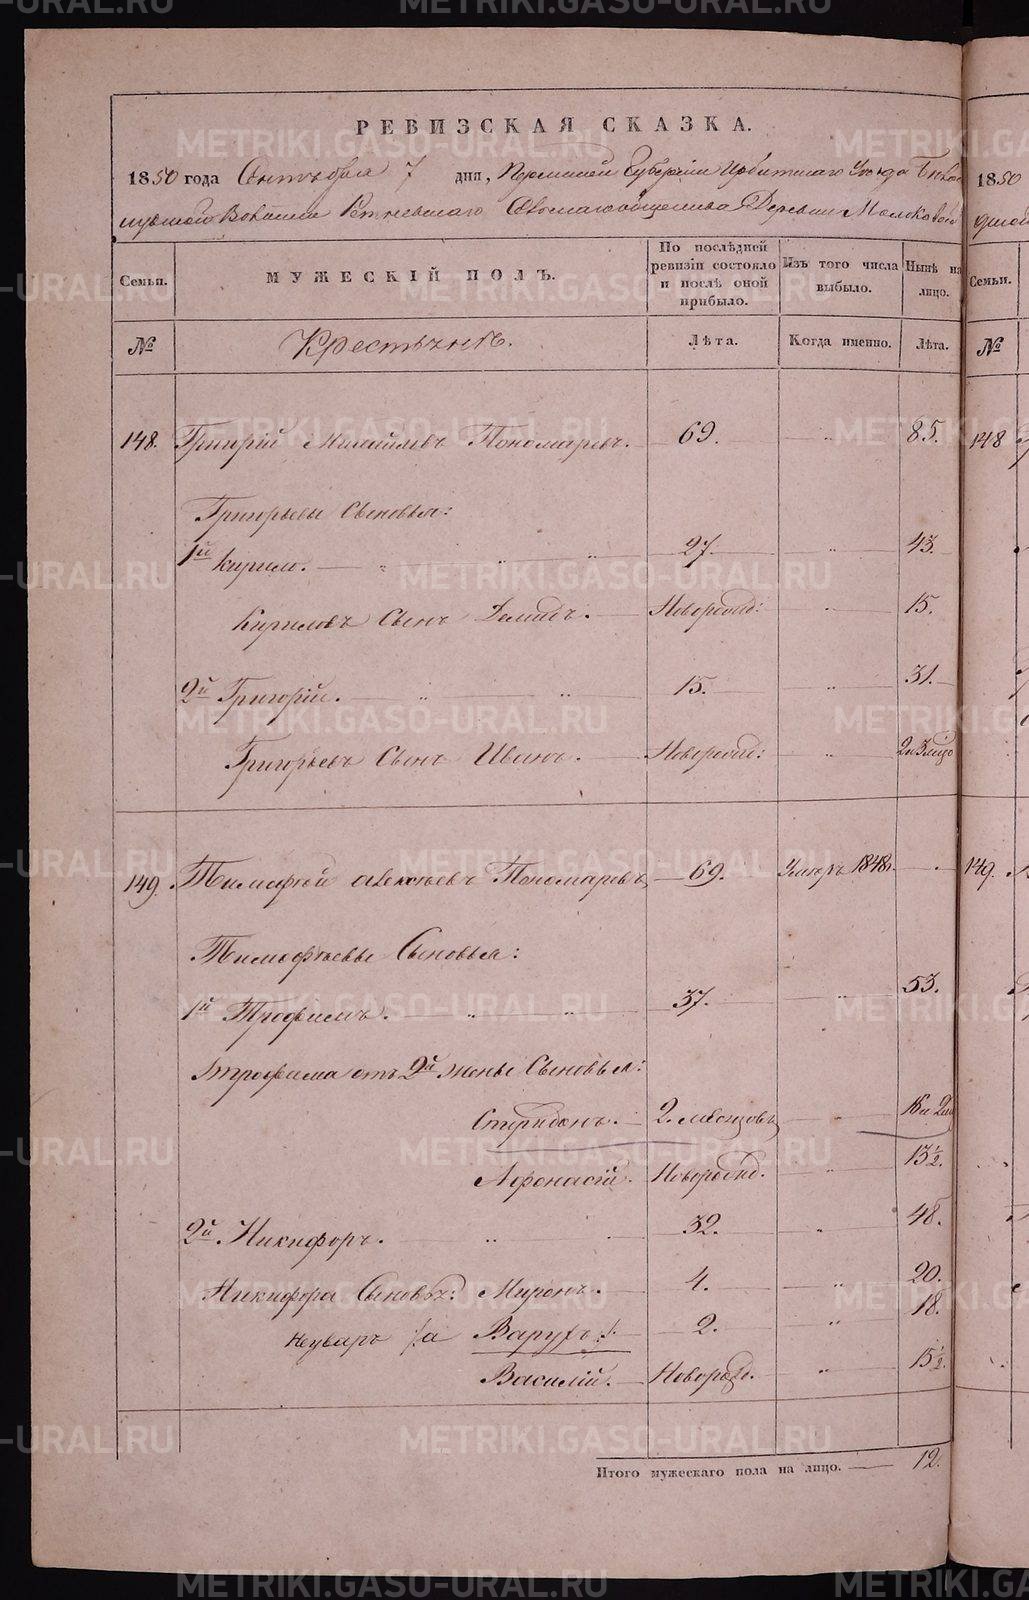 РЕВИЗСКАЯ СКАЗКА.
1850 года Сентября 7 дня, Пермской Губернии Ирбитскаго Уезда
Волости Ретневскаго Сельскаго общества Деревни Молоковой
Семьи. МУЖЕСКІЙ ПОЛЪ. По послѣдней ревизіи состояло и послѣ оной прибыло. Изъ того числа выбыло. Нынѣ на лицо.
№ Крестьянѣ. Лѣта. Когда именно. Лѣта.
148. Григорій Михайловъ Пономаревъ. 69. 85.
Григорьевы Сыновья:
1й Кирило. 27. 43.
Кириловъ Сынъ Демидъ. Новорожд: 15.
2й Григорій. 15. 31.
Григорьевъ Сынъ Иванъ. Новорожд:
149. Тимофей Алексѣевъ Пономаревъ 69. Умеръ 1848г.
Тимофѣевы Сыновья:
1й Трофимъ. 37. 53.
Трофима отъ 2й жены Сыновья:
Спиридонъ. 2. мѣсяцовъ
Афонасій. Новорожд. 13½.
2й Никифоръ. 32. 48.
Никифора Сыновья: Миронъ. 4. 20.
Неувар /:а Варухъ:/. 2. 18.
Василій. Новорожд. 15½.
Итого мужескаго пола на лицо. 12.
1850
Семьи.
№
148
149.
METRIKI.GASO-URAL.RU